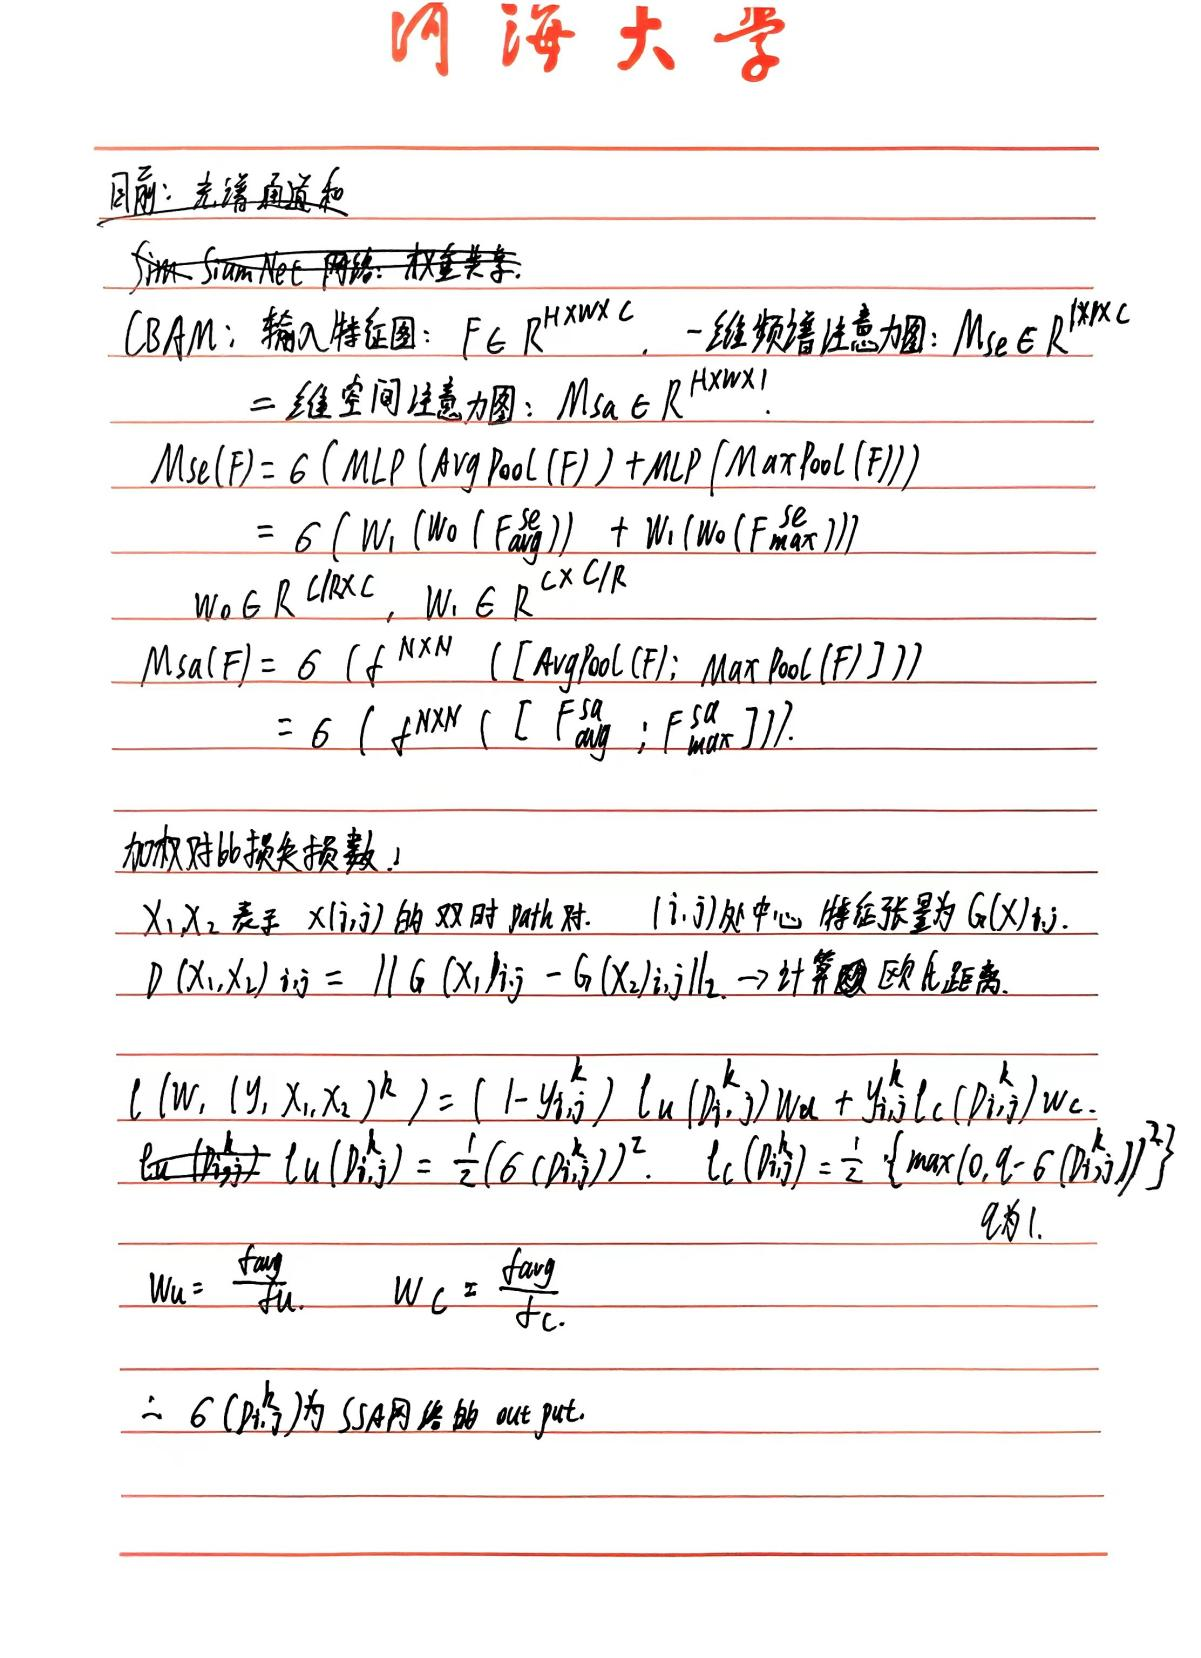 河海大学
目前：光谱通道和
Sim SiamNet 网络：权重共享.
CBAM：输入特征图：F∈R^{H×W×C}. 一维频谱注意力图：Mse∈R^{1×1×C}
二维空间注意力图：Msa∈R^{H×W×1}.
Mse(F)=6(MLP(AvgPool(F))+MLP(MaxPool(F)))
=6(W₁(W₀(F^{se}_{avg}))+W₁(W₀(F^{se}_{max})))
W₀∈R^{C/R×C}, W₁∈R^{C×C/R}
Msa(F)=6(f^{N×N}([AvgPool(F); MaxPool(F)]))
=6(f^{N×N}([F^{sa}_{avg}; F^{sa}_{max}])).
加权对bb损失损数：
X₁,X₂表示 x(i,j)的双时path对. (i,j)处中心特征张量为G(X)i,j.
D(X₁,X₂)i,j=||G(X₁)i,j-G(X₂)i,j||₂→计算欧氏距离.
l(W,(y,X₁,X₂)^k)=(1-y^k_{i,j})lu(D^k_{i,j})Wu+y^k_{i,j}lc(D^k_{i,j})Wc.
lu(D^k_{i,j}) lu(D^k_{i,j})=½(6(D^k_{i,j}))². lc(D^k_{i,j})=½{max(0,q-6(D^k_{i,j}))²}
q为1.
Wu=favg/fu. Wc=favg/fc.
∴ 6(D^k_{i,j})为SSA网络的output.